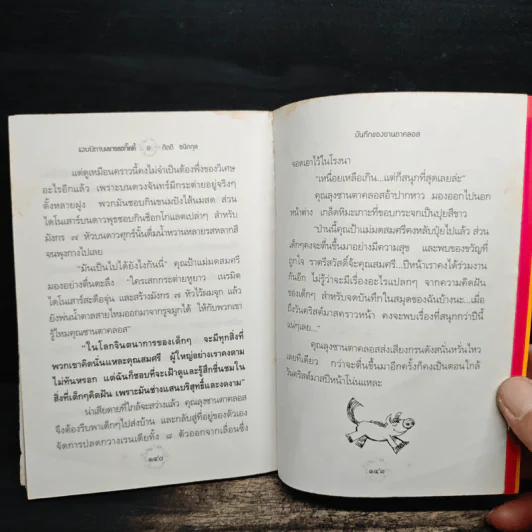 แวบนิทานหลายรสก็ไดดี้ ๑ กิตติ ชนิตกุล
แต่ดูเหมือนคราวนี้คงไม่จำเป็นต้องพึ่งของวิเศษ
อะไรอีกแล้ว เพราะบนดวงจันทร์มีกระต่ายอยู่จริงๆ
ตั้งหลายฝูง พวกมันชอบกินขนมปังไส้นมสด ส่วน
ไดโนเสาร์บนดาวพุธชอบกินช็อกโกแลตเปล่าๆ สำหรับ
มังกร ๗ หัวบนดาวศุกร์นั้นดื่มน้ำหวานหลายรสหลากสี
จนพุงกางไปเลย
"มันเป็นไปได้ยังไงกันนี่" คุณป้าแม่มดสมศรี
มองอย่างตื่นตะลึง "ใครเสกกระต่ายหูยาว เนรมิต
ไดโนเสาร์และดื้อจุ่น และสร้างมังกร ๗ หัวไว้รอมจุก แล้ว
ยังพ่นน้ำตาลสายไหมออกมาจากรูจมูกได้ ให้กับพวกเขา
รู้ไหมคุณซานตาคลอส"
"ในโลกจินตนาการของเด็กๆ จะมีทุกสิ่งที่
พวกเขาคิดนั่นแหละคุณสมศรี ผู้ใหญ่อย่างเราคงตาม
ไม่ทันหรอก แต่ฉันก็ชอบที่จะเฝ้าดูและรู้สึกชื่นชมใน
สิ่งที่เด็กๆคิดฝัน เพราะมันช่างแสนบริสุทธิ์และงดงาม"
น่าเสียดายที่ใกล้จะสว่างแล้ว คุณลุงซานตาคลอส
จึงต้องรีบพาเด็กๆไปส่งบ้าน และกลับสู่ที่อยู่ของตัวเอง
จัดการปลดกวางเรนเดียทั้ง ๘ ตัวออกจากเลื่อนซึ่ง
๑๔๗
บันทึกของซานตาคลอส
จอดเอาไว้ในโรงนา
"เหนื่อยเหลือเกิน...แต่ก็สนุกที่สุดเลยล่ะ"
คุณลุงซานตาคลอสอ้าปากหาว มองออกไปนอก
หน้าต่าง เกล็ดหิมะเกาะที่ขอบกระจกเป็นปุยสีขาว
"ป่านนี้คุณป้าแม่มดสมศรีคงหลับปุ๋ยไปแล้ว ส่วน
เด็กๆคงจะตื่นขึ้นมาอย่างมีความสุข และพบของขวัญที่
ถูกใจ ราตรีสวัสดิ์จ้ะคุณสมศรี...ปีหน้าเราคงได้ร่วมงาน
กันอีก ไม่รู้ว่าจะมีเรื่องอะไรแปลกๆ จากความคิดฝัน
ของเด็กๆ สำหรับจดบันทึกในสมุดของฉันบ้างนะ...เมื่อ
ถึงวันคริสต์มาสคราวหน้า คงจะพบเรื่องที่สนุกกว่าปีนี้
แน่ๆเลย..."
คุณลุงซานตาคลอสส่งเสียงกรนดังสนั่นหวั่นไหว
เลยทีเดียว กว่าจะตื่นขึ้นมาอีกครั้งก็คงเป็นตอนใกล้
วันคริสต์มาสปีหน้าโน่นแหละ
๑๔๘